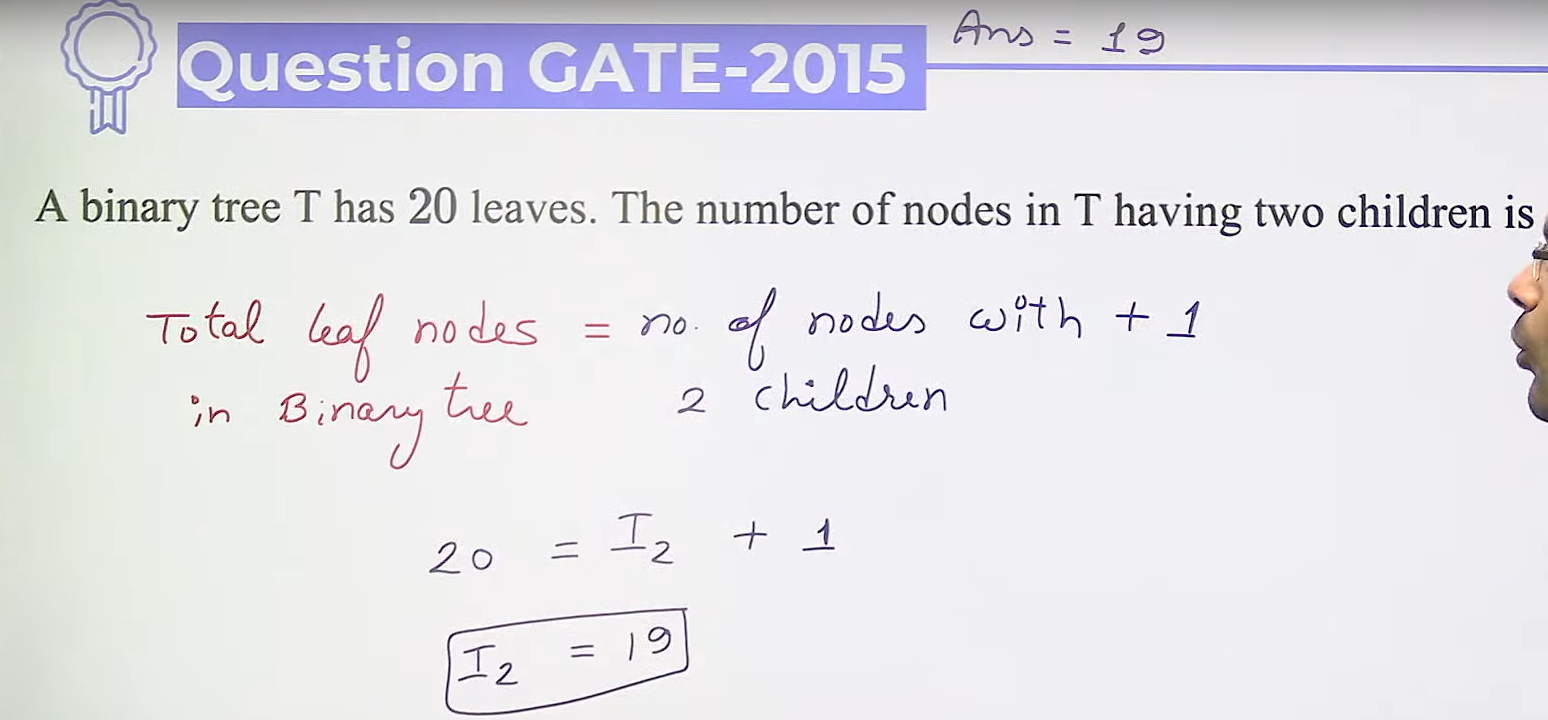 Question GATE-2015
Ans = 19
A binary tree T has 20 leaves. The number of nodes in T having two children is
Total leaf nodes = no. of nodes with + 1
in Binary tree 2 children
20 = I2 + 1
I2 = 19